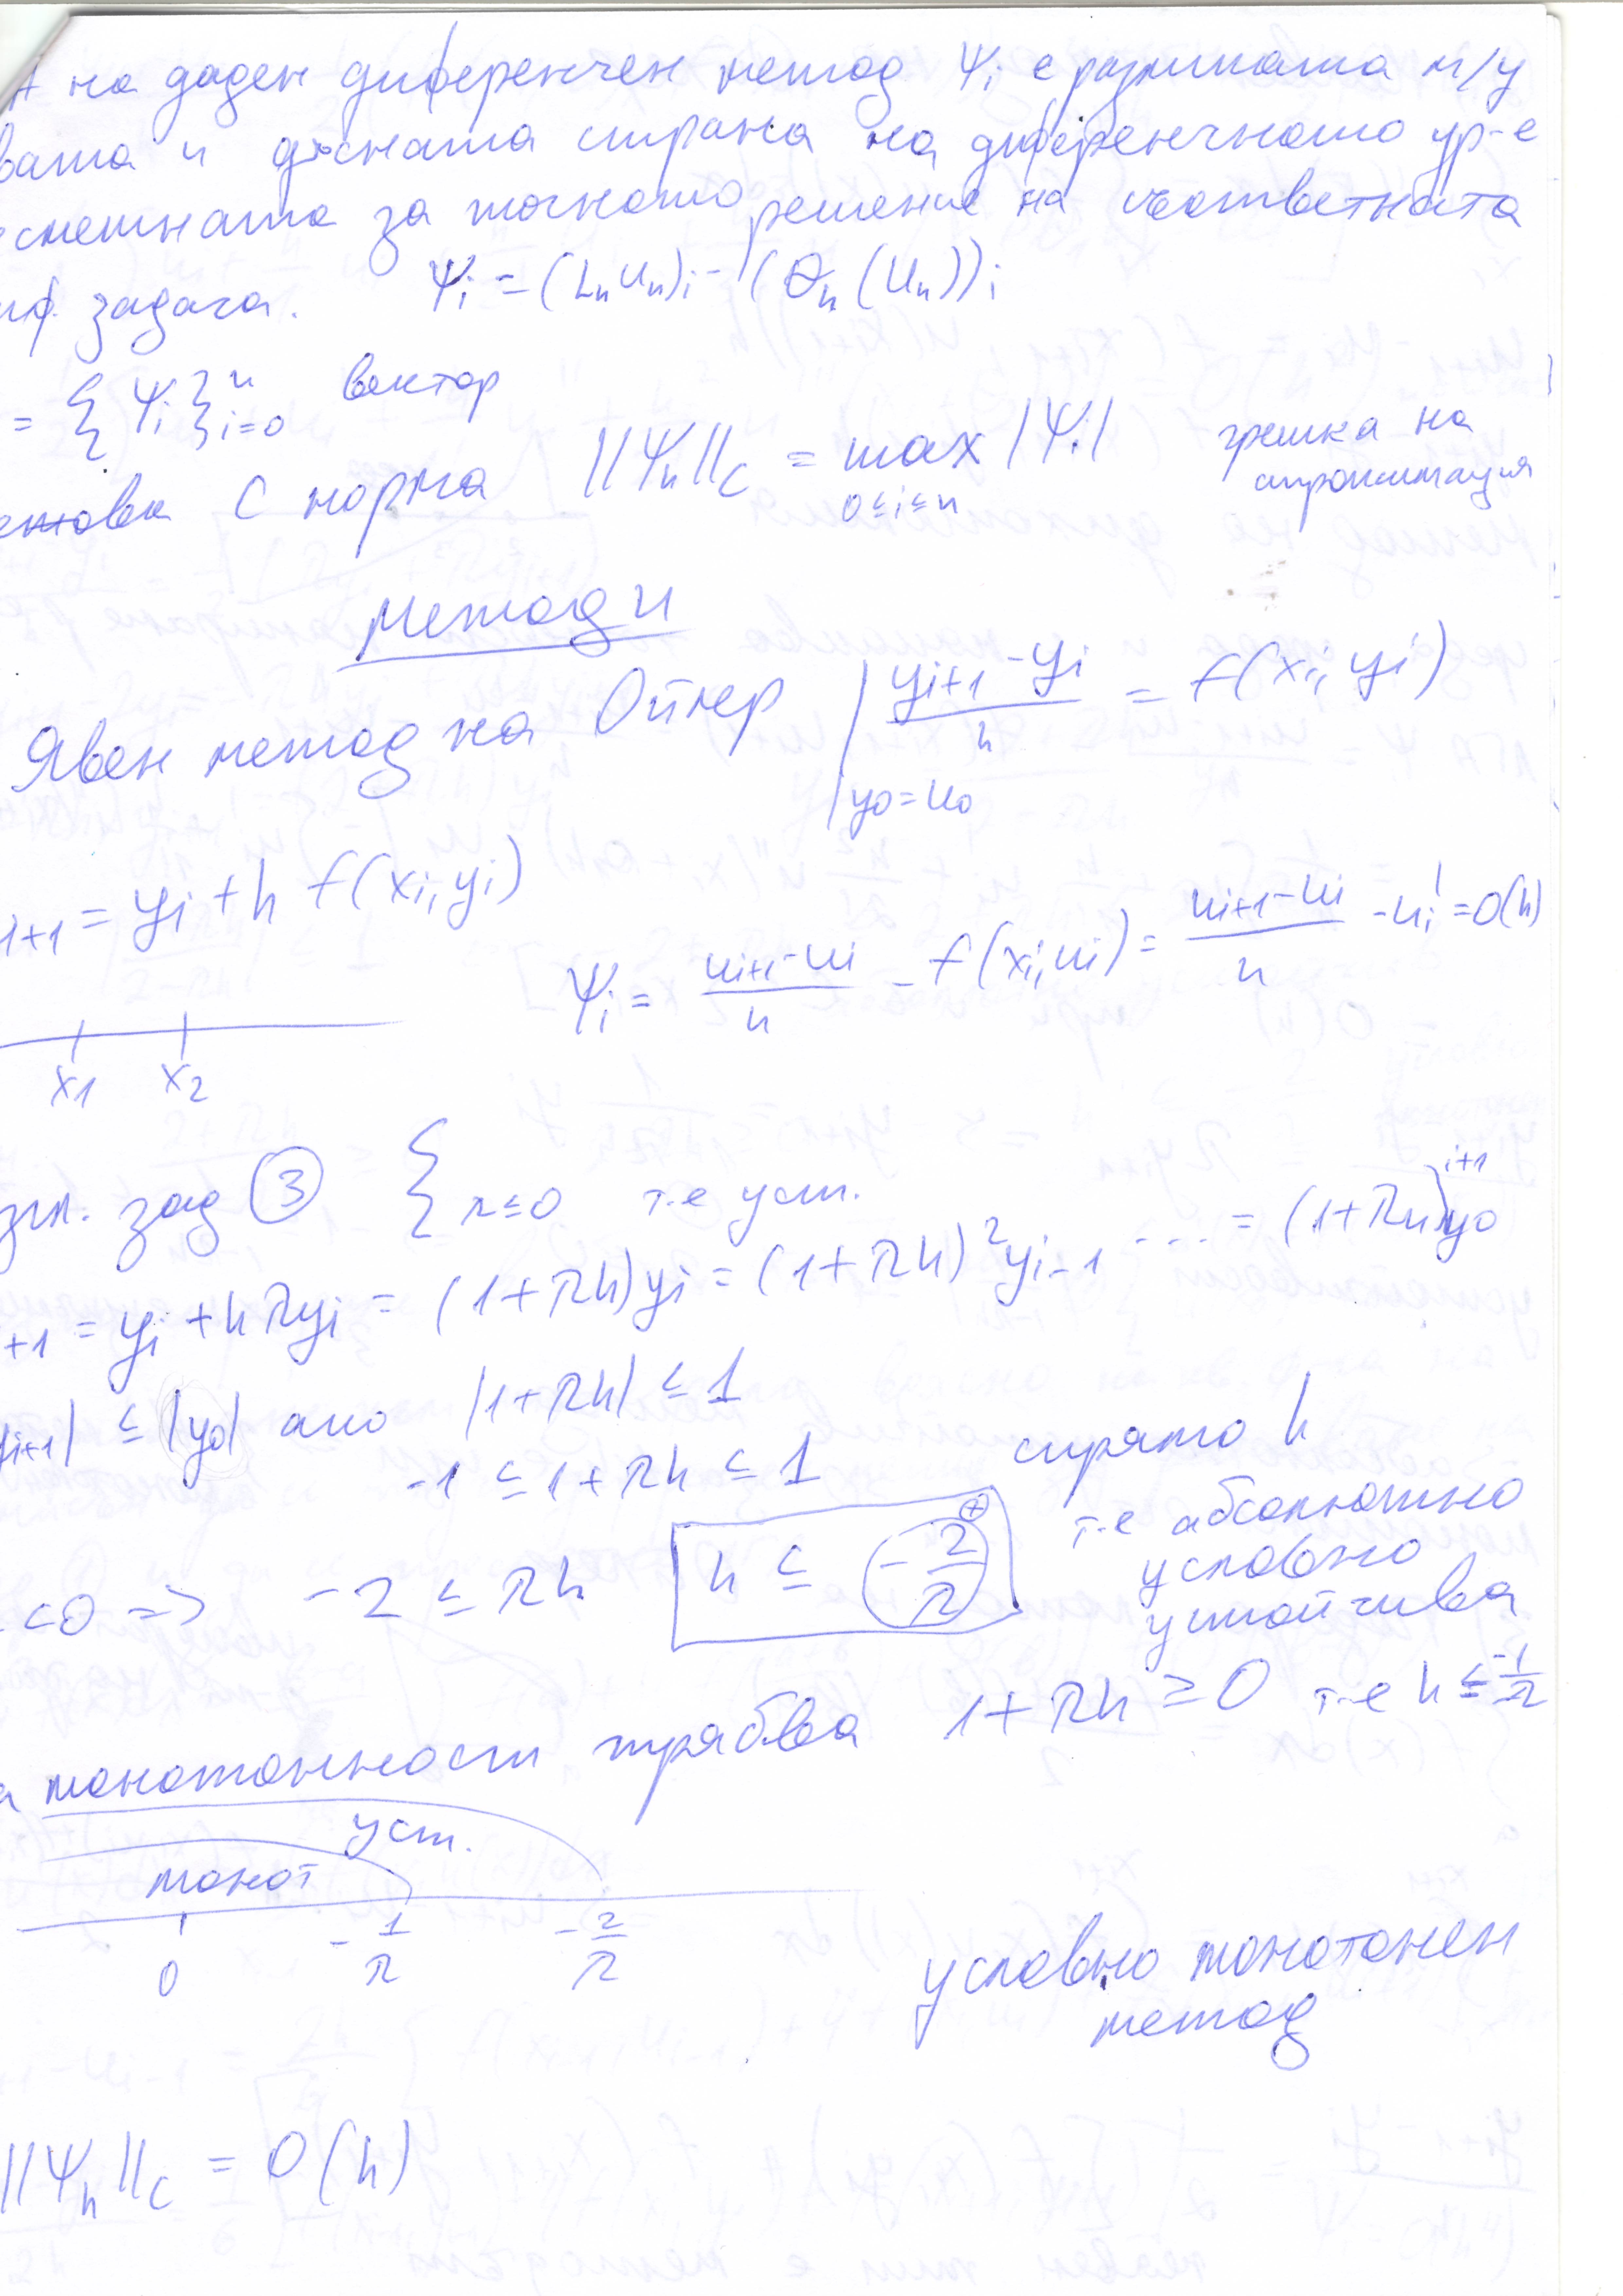 на даден диференчен метод Ψi е разликата м/у
вата и дясната страна на диференчното ур-е
сметната за точното решение на съответната
диф. задача. Ψi = (Lh Uh)i - (Θh (Uh))i
= { Ψi }i=0^n вектор
C норма ||Ψh||C = max |Ψi| 0≤i≤n грешка на апроксимация
Методи
Явен метод на Ойлер | (yi+1 - yi)/h = f(xi, yi)
| y0 = u0
i+1 = yi + h f(xi, yi)
Ψi = (ui+1 - ui)/h - f(xi, ui) = (ui+1 - ui)/h - ui' = O(h)
x1 x2
зад ③ { λ ≤ 0 т.е уст.
+1 = yi + hλyi = (1+λh)yi = (1+λh)²yi-1 ... = (1+λh)^i+1 y0
yi+1| ≤ |y0| ако |1+λh| ≤ 1
-1 ≤ 1+λh ≤ 1
спрямо h
<0 => -2 ≤ λh h ≤ -2/λ ⊕
т.е абсолютно
условно
устойчива
а монотонност трябва 1+λh ≥ 0 т.е h ≤ -1/λ
уст.
монот
0 -1/λ -2/λ
условно монотонен
метод
||Ψh||C = O(h)